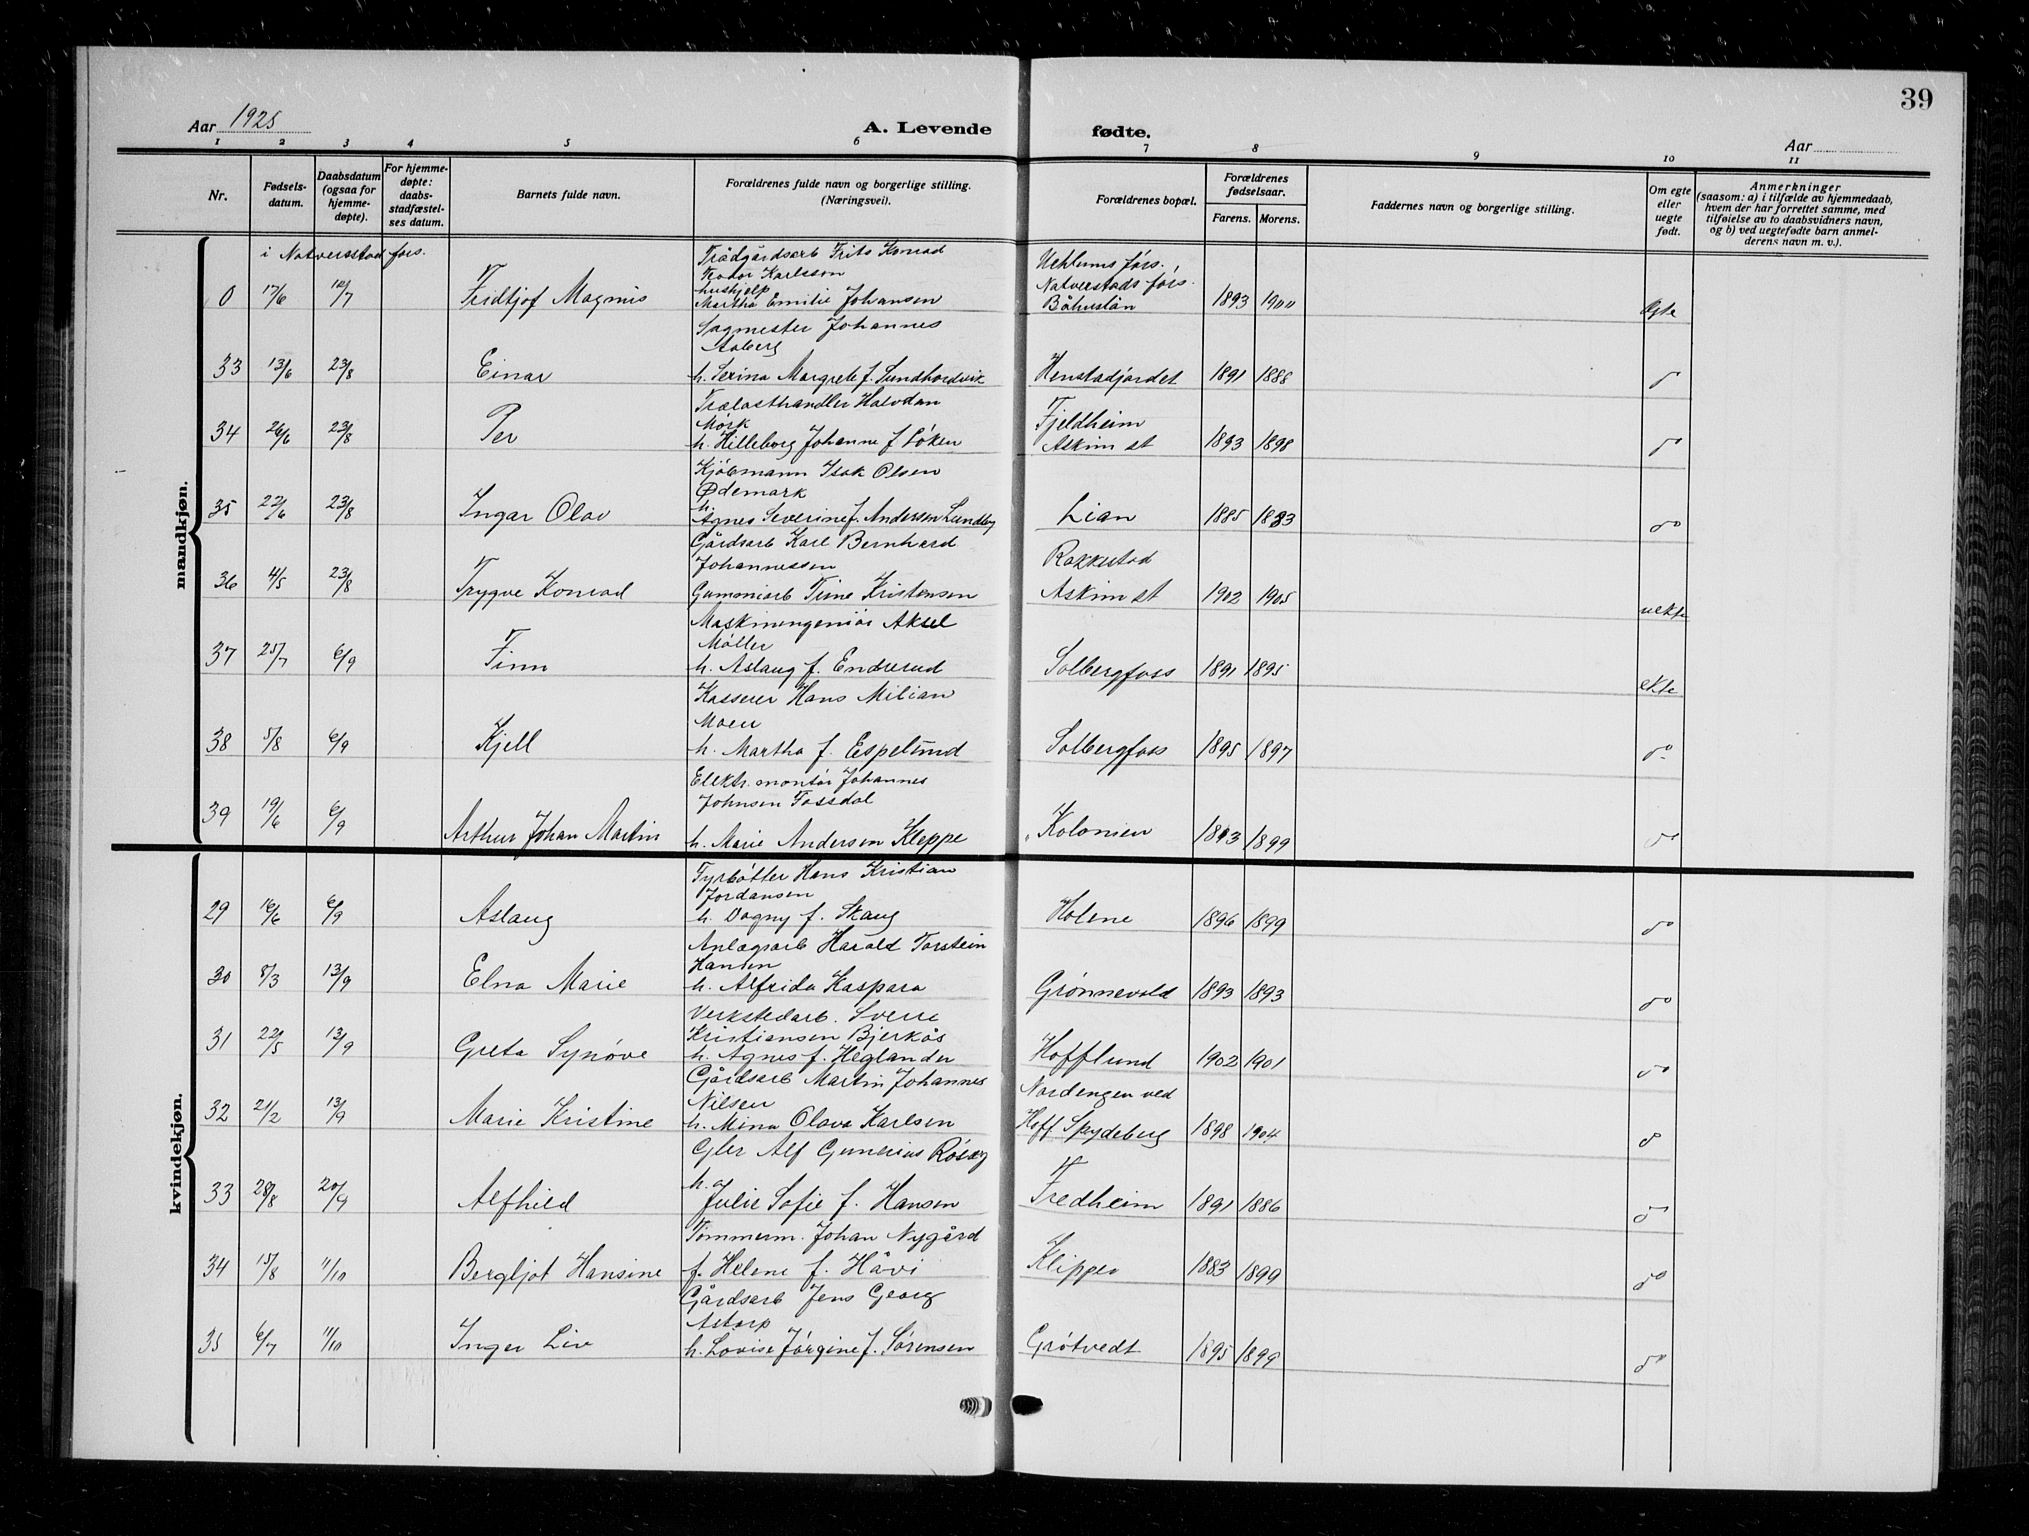 39
Aar 1925
A. Levende fødte.
Aar
1 2 3 4 5 6 7 8 9 10 11
Nr.
Fødsels-
datum.
Daabsdatum
(ogsaa for
hjemme-
døpte).
For hjemme-
døpte:
daabs-
stadfæstel-
ses datum.
Barnets fulde navn.
Forældrenes fulde navn og borgerlige stilling.
(Næringsvei).
Forældrenes bopæl.
Forældrenes
fødselsaar.
Farens. Morens.
Faddernes navn og borgerlige stilling.
Om egte
eller
uegte
født.
Anmerkninger
(saasom: a) i tilfælde av hjemmedaab,
hvem der har forrettet samme, med
tilføielse av to daabsvidners navn,
og b) ved uegtefødte barn anmel-
derens navn m. v.).
mandkjøn.
i Natversstad førs.
Trädgårdsarb Frits Konrad
Teodor Karlsson
hushjelp
0 17/6 12/7 Fridtjof Magnus Martha Emilie Johansen
Uehlums førs.
Natverstads førs.
Båhuslän 1893 1900 egte
Sagmester Johannes
Aaberg
33 13/6 23/8 Einar h. Serina Margrete f. Sundhordvik Henstadjordet 1891 1888 do
Trælasthandler Halvdan
Mørk
34 26/6 23/8 Per h. Hilleborg Johanne f Løken
Fjeldheim
Askim st 1893 1898 do
Kjøbmann Isak Olsen
Ødemark
h.
35 22/6 23/8 Ingar Olav Agnes Severine f. Andersen Lundby Lian 1885 1883 do
Gårdsarb Karl Bernhard
Johannessen
36 4/5 23/8 Trygve Konrad Gumoniarb Trine Kristensen
Rakkestad
Askim st 1902 1905 uekte
Maskiningeniør Aksel
Møller
37 25/7 6/9 Finn h. Aslaug f. Endrerud Solbergfoss 1891 1895 ekte
Kasserer Hans Milian
Moen
38 5/8 6/9 Kjell h. Martha f. Espelund Solbergfoss 1895 1897 do
Elektr. montør Johannes
Johnsen Fossdal
39 19/6 6/9 Arthur Johan Martin h. Marie Andersen Kleppe Kolonien 1893 1899 do
kvindekjøn.
Fyrbøtter Hans Kristian
Jordansen
29 16/6 6/9 Aslaug h. Dagny f. Skaug Holene 1896 1899 do
Anlægsarb Harald Torstein
Hansen
30 8/3 13/9 Elna Marie h. Alfrida Kaspara Grønnevold 1893 1893 do
Verkstedarb. Sverre
Kristiansen Bjerkås
31 22/5 13/9 Greta Synøve h. Agnes f. Heglander Hofflund 1902 1901 do
Gårdsarb Martin Johannes
Nilsen
32 21/2 13/9 Marie Kristine h. Mina Olava Karlsen
Nordengen ved
Hoff Spydeberg 1898 1904 do
Gler Alf Gunerius Røsæg
h.
33 28/8 20/9 Alfhild Julie Sofie f. Hansen Fredheim 1891 1886 do
Tømmerm. Johan Nygård
34 15/8 11/10 Bergljot Hansine f. Helene f. Håvi Klipper 1883 1899 do
Gårdsarb Jens Georg
Astorp
35 6/7 11/10 Inger Liv h. Lovise Jørgine f. Sørensen Grøtvedt 1895 1899 do